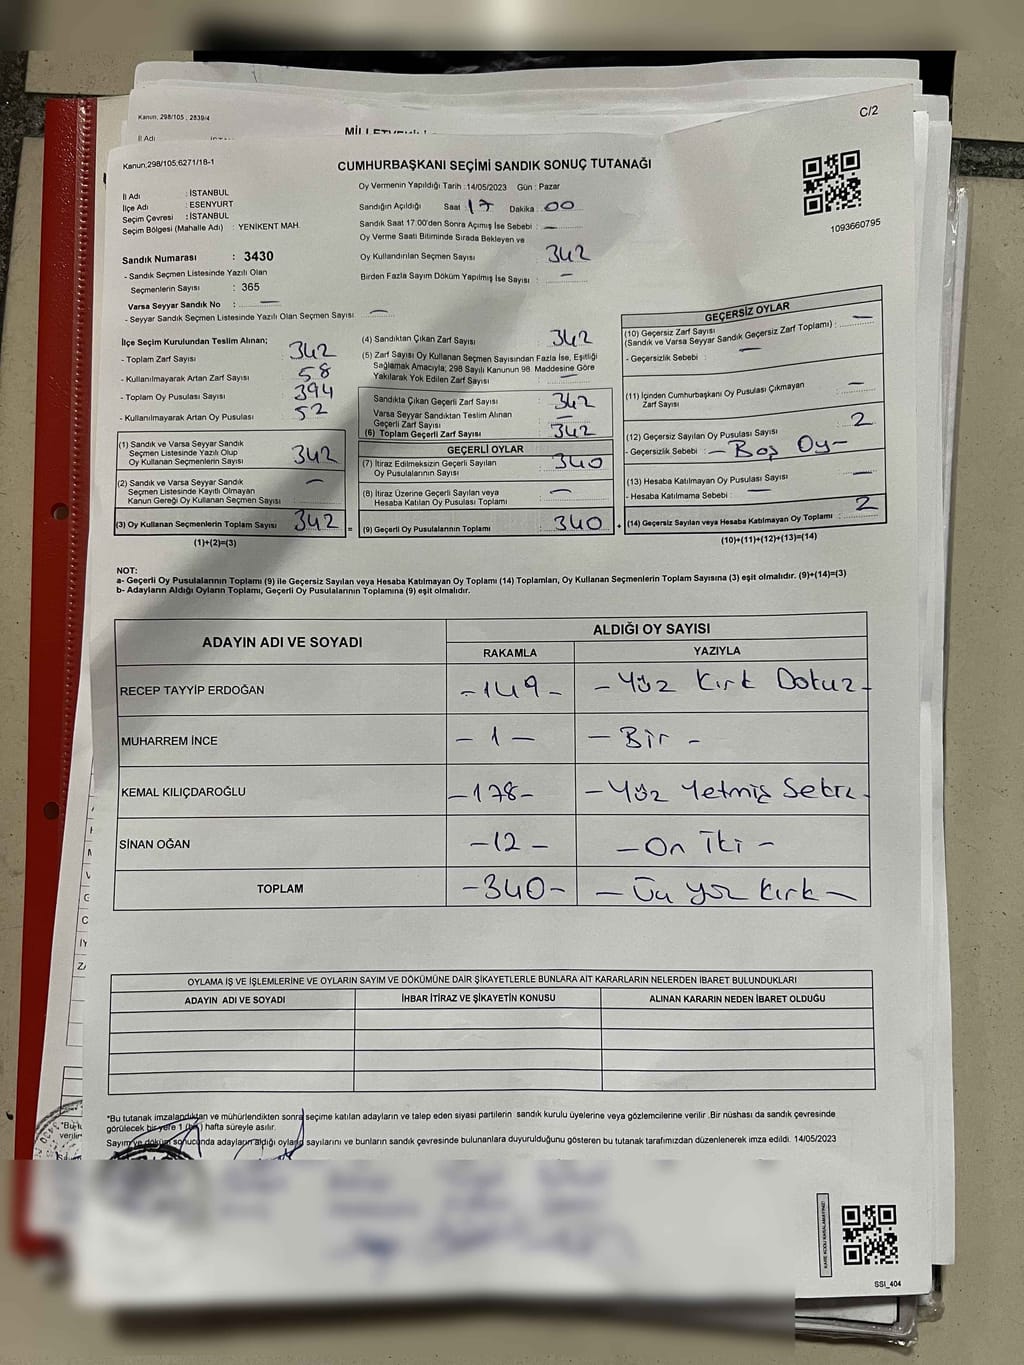 Kanun, 298/105, 2839/4
İl Adı
C/2
Kanun,298/105,6271/18-1
CUMHURBAŞKANI SEÇİMİ SANDIK SONUÇ TUTANAĞI
1093660795
İl Adı : İSTANBUL
İlçe Adı : ESENYURT
Seçim Çevresi : İSTANBUL
Seçim Bölgesi (Mahalle Adı) : YENİKENT MAH
Sandık Numarası : 3430
- Sandık Seçmen Listesinde Yazılı Olan
Seçmenlerin Sayısı : 365
Varsa Seyyar Sandık No : —
- Seyyar Sandık Seçmen Listesinde Yazılı Olan Seçmen Sayısı : —
Oy Vermenin Yapıldığı Tarih :14/05/2023 Gün : Pazar
Sandığın Açıldığı Saat 17 Dakika 00
Sandık Saat 17:00'den Sonra Açımış İse Sebebi : —
Oy Verme Saati Bitiminde Sırada Bekleyen ve
Oy Kullandırılan Seçmen Sayısı 342
Birden Fazla Sayım Döküm Yapılmış İse Sayısı : —
İlçe Seçim Kurulundan Teslim Alınan;
- Toplam Zarf Sayısı 342
- Kullanılmayarak Artan Zarf Sayısı 58
- Toplam Oy Pusulası Sayısı 394
- Kullanılmayarak Artan Oy Pusulası 52
(1) Sandık ve Varsa Seyyar Sandık
Seçmen Listesinde Yazılı Olup
Oy Kullanan Seçmenlerin Sayısı 342
(2) Sandık ve Varsa Seyyar Sandık
Seçmen Listesinde Kayıtlı Olmayan
Kanun Gereği Oy Kullanan Seçmen Sayısı : —
(3) Oy Kullanan Seçmenlerin Toplam Sayısı 342 =
(1)+(2)=(3)
(4) Sandıktan Çıkan Zarf Sayısı 342
(5) Zarf Sayısı Oy Kullanan Seçmen Sayısından Fazla İse, Eşitliği
Sağlamak Amacıyla; 298 Sayılı Kanunun 98. Maddesine Göre
Yakılarak Yok Edilen Zarf Sayısı —
Sandıkta Çıkan Geçerli Zarf Sayısı 342
Varsa Seyyar Sandıktan Teslim Alınan
Geçerli Zarf Sayısı —
(6) Toplam Geçerli Zarf Sayısı 342
GEÇERLİ OYLAR
(7) İtiraz Edilmeksizin Geçerli Sayılan
Oy Pusulalarının Sayısı 340
(8) İtiraz Üzerine Geçerli Sayılan veya
Hesaba Katılan Oy Pusulası Toplamı —
(9) Geçerli Oy Pusulalarının Toplamı : 340 +
GEÇERSİZ OYLAR
(10) Geçersiz Zarf Sayısı
(Sandık ve Varsa Seyyar Sandık Geçersiz Zarf Toplamı) : —
- Geçersizlik Sebebi : —
(11) İçinden Cumhurbaşkanı Oy Pusulası Çıkmayan
Zarf Sayısı —
(12) Geçersiz Sayılan Oy Pusulası Sayısı 2
- Geçersizlik Sebebi : — Boş Oy —
(13) Hesaba Katılmayan Oy Pusulası Sayısı —
- Hesaba Katılmama Sebebi : —
(14) Geçersiz Sayılan veya Hesaba Katılmayan Oy Toplamı : 2
(10)+(11)+(12)+(13)=(14)
NOT:
a- Geçerli Oy Pusulalarının Toplamı (9) ile Geçersiz Sayılan veya Hesaba Katılmayan Oy Toplamı (14) Toplamları, Oy Kullanan Seçmenlerin Toplam Sayısına (3) eşit olmalıdır. (9)+(14)=(3)
b- Adayların Aldığı Oyların Toplamı, Geçerli Oy Pusulalarının Toplamına (9) eşit olmalıdır.
ADAYIN ADI VE SOYADI ALDIĞI OY SAYISI
RAKAMLA YAZIYLA
RECEP TAYYİP ERDOĞAN -149- - Yüz Kırk Dokuz -
MUHARREM İNCE - 1 - - Bir -
KEMAL KILIÇDAROĞLU -178- - Yüz Yetmiş Sekiz -
SİNAN OĞAN -12- - On İki -
TOPLAM -340- - Üç yüz kırk -
OYLAMA İŞ VE İŞLEMLERİNE VE OYLARIN SAYIM VE DÖKÜMÜNE DAİR ŞİKAYETLERLE BUNLARA AİT KARARLARIN NELERDEN İBARET BULUNDUKLARI
ADAYIN ADI VE SOYADI İHBAR İTİRAZ VE ŞİKAYETİN KONUSU ALINAN KARARIN NEDEN İBARET OLDUĞU
*Bu tutanak imzalandıktan ve mühürlendikten sonra seçime katılan adayların ve talep eden siyasi partilerin sandık kurulu üyelerine veya gözlemcilerine verilir .Bir nüshası da sandık çevresinde
görülecek bir yere 1 (bir) hafta süreyle asılır.
Sayım ve döküm sonucunda adayların aldığı oyların sayılarını ve bunların sandık çevresinde bulunanlara duyurulduğunu gösteren bu tutanak tarafımızdan düzenlenerek imza edildi. 14/05/2023
KARE KODU KARALAMAYINIZ!
SSI_404